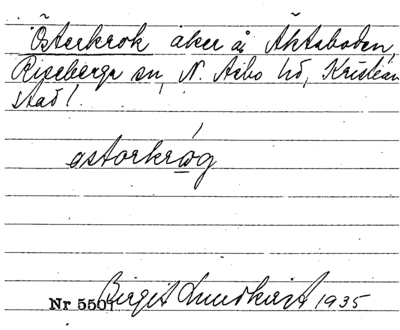 Österkrok åker å Äktaboden,
Riseberga sn, N. Åsbo hd, Kristian
stad l.
astorkrog
Nr 5501 Birgit Lundkvist 1935